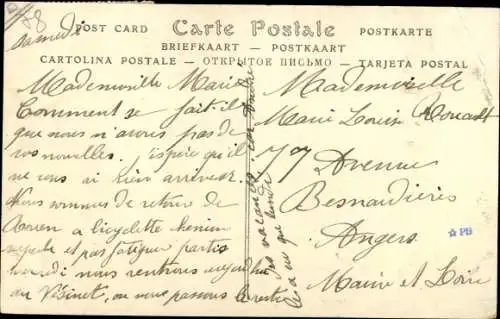 88
Samedi
POST CARD Carte Postale POSTKARTE
BRIEFKAART — POSTKAART
CARTOLINA POSTALE — ОТКРЫТОЕ ПИСЬМО — TARJETA POSTAL
Mademoiselle Marie
Comment se fait-il
que nous n'avons pas de
vos nouvelles. J'espère qu'il
ne vous ai rien arriver.
Nous sommes de retour de
Rouen a bicyclette chemin
superbe et pas fatiguer partis
nous rentrons aujourd'hui
au Vésinet, ou nous passons le reste
des vacances en
Mademoiselle
Marie Louise Rouault
77 Avenue
Besnardières
Angers
Maine et Loire
PB